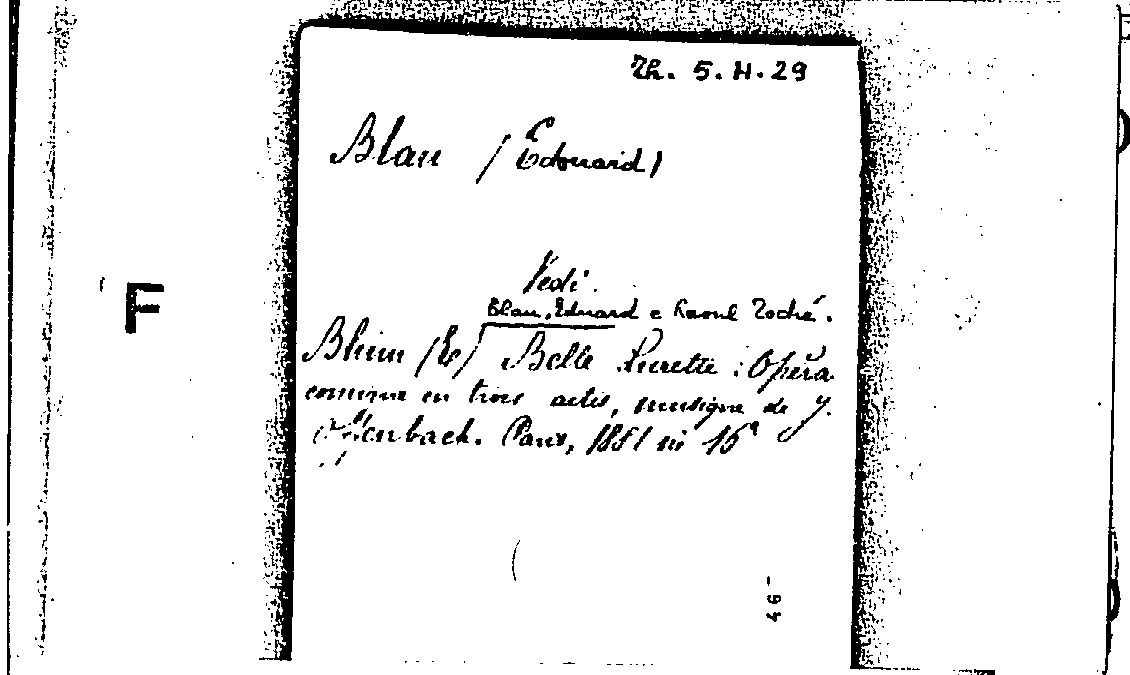 Th. 5. H. 29
Blau (Edouard)
Vedi.
Blau, Eduard e Raoul Toché.
F
Blum (E.) Belle Lurette : Opéra
comique en trois actes, musique de J.
Offenbach. Paris, 1881 in 16°
46-